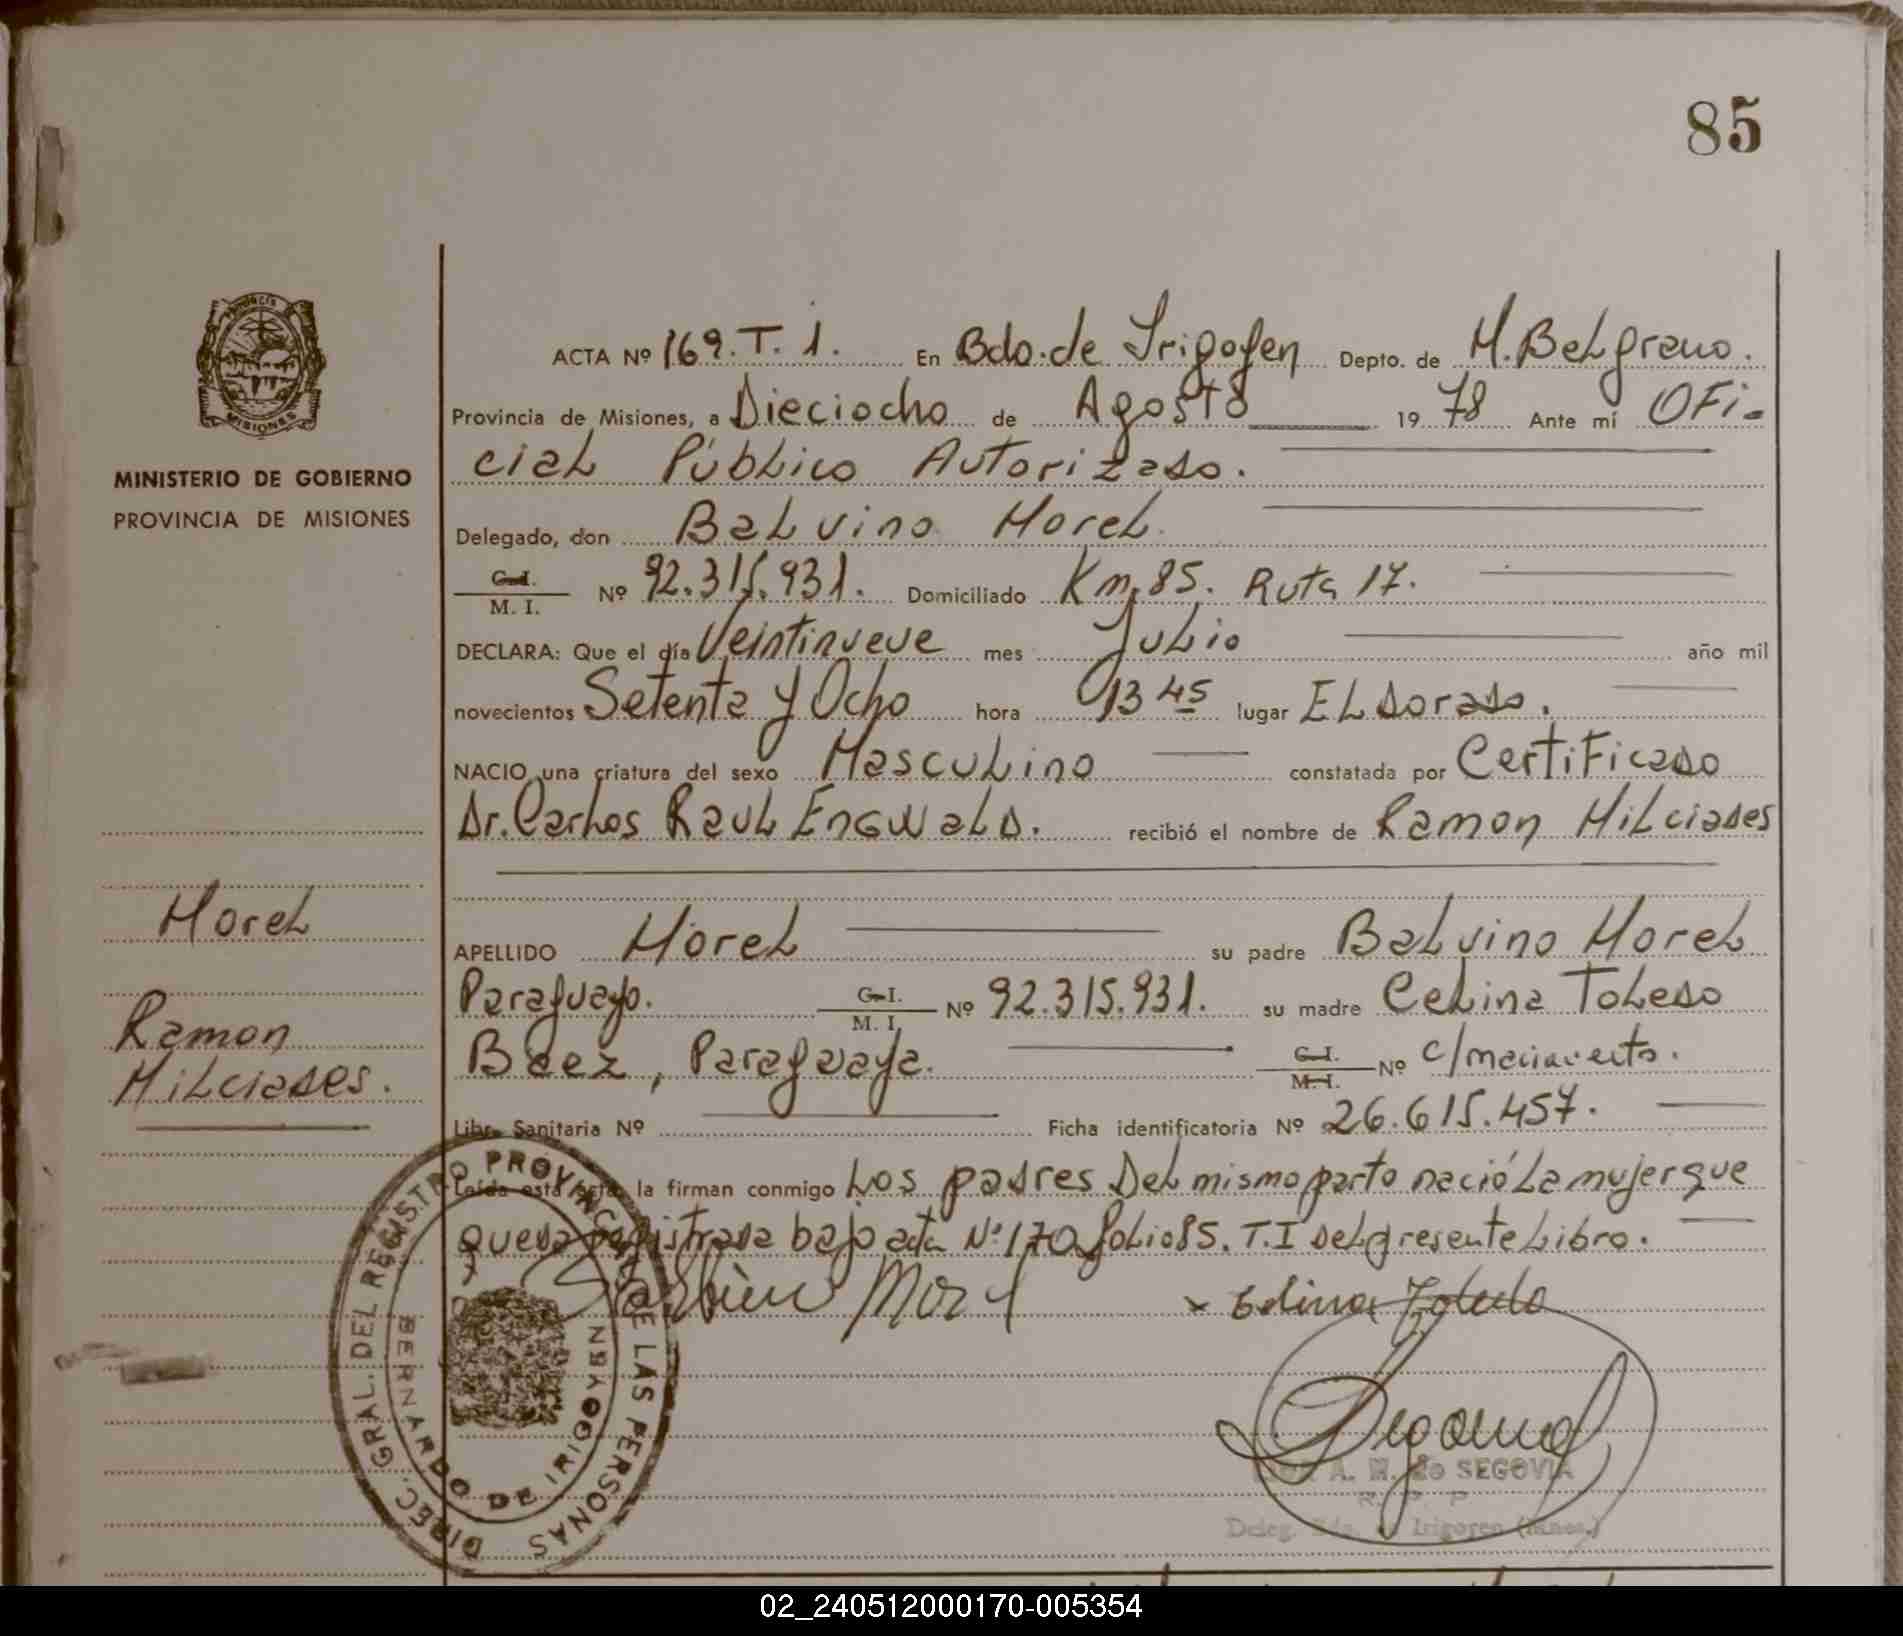 85
PROVINCIA
MISIONES
MINISTERIO DE GOBIERNO
PROVINCIA DE MISIONES
ACTA Nº 169.T.1. En Bdo. de Irigoyen Depto. de M. Belgrano.
Provincia de Misiones, a Dieciocho de Agosto 1978 Ante mí Ofi-
cial Público Autorizado.
Delegado, don Balvino Morel
C.I. M. I. Nº 92.315.931. Domiciliado Km, 85. Ruta 17.
DECLARA: Que el día Veintinueve mes Julio año mil
novecientos Setenta y Ocho hora 13 45 lugar ELdorado.
NACIO una criatura del sexo Masculino constatada por Certificado
Dr. Carlos Raul Engwald. recibió el nombre de Ramon Milciades
Morel
Ramon
Milciades.
APELLIDO Morel su padre Balvino Morel
Paraguayo. C.I. M. I. Nº 92.315.931. su madre Celina Toledo
Baez, Paraguaya. C.I. M.I. Nº c/
Libr. Sanitaria Nº Ficha identificatoria Nº 26.615.457.
Leída esta acta, la firman conmigo Los padres Del mismo parto nació La mujer que
queda registrada bajo acta Nº 170 folio 85. T.I del presente Libro.
Balbino Morel x Celina Toledo
DIREC. GRAL. DEL REGISTRO PROVINCIAL DE LAS PERSONAS
BERNARDO DE IRIGOYEN
A. M. de SEGOVIA
R. P. P.
Deleg. Bdo. de Irigoyen (Mnes.)
02_240512000170-005354